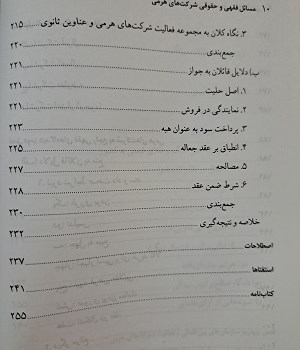 ۱۰ مسائل فقهی و حقوقی شرکت‌های هرمی
۳. نگاه کلان به مجموعه فعالیت شرکت‌های هرمی و عناوین ثانوی ۲۱۵
جمع‌بندی ۲۲۰
ب) دلایل قائلان به جواز ۲۲۱
۱. اصل حلیت ۲۲۱
۲. نمایندگی در فروش ۲۲۱
۳. پرداخت سود به عنوان هبه ۲۲۳
۴. انطباق بر عقد جعاله ۲۲۵
۵. مصالحه ۲۲۷
۶. شرط ضمن عقد ۲۲۸
جمع‌بندی ۲۳۰
خلاصه و نتیجه‌گیری ۲۳۲
اصطلاحات ۲۳۷
استفتاها ۲۴۱
کتاب‌نامه ۲۵۵